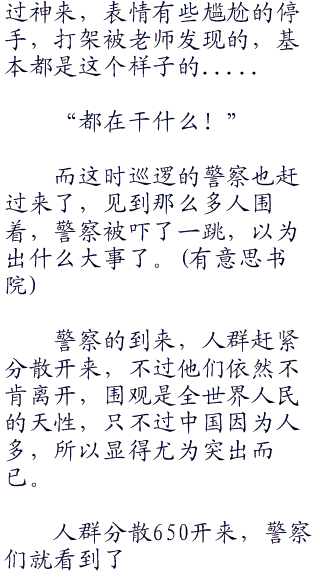 过神来，表情有些尴尬的停
手，打架被老师发现的，基
本都是这个样子的.....
“都在干什么！”
而这时巡逻的警察也赶
过来了，见到那么多人围
着，警察被吓了一跳，以为
出什么大事了。(有意思书
院)
警察的到来，人群赶紧
分散开来，不过他们依然不
肯离开，围观是全世界人民
的天性，只不过中国因为人
多，所以显得尤为突出而
已。
人群分散650开来，警察
们就看到了